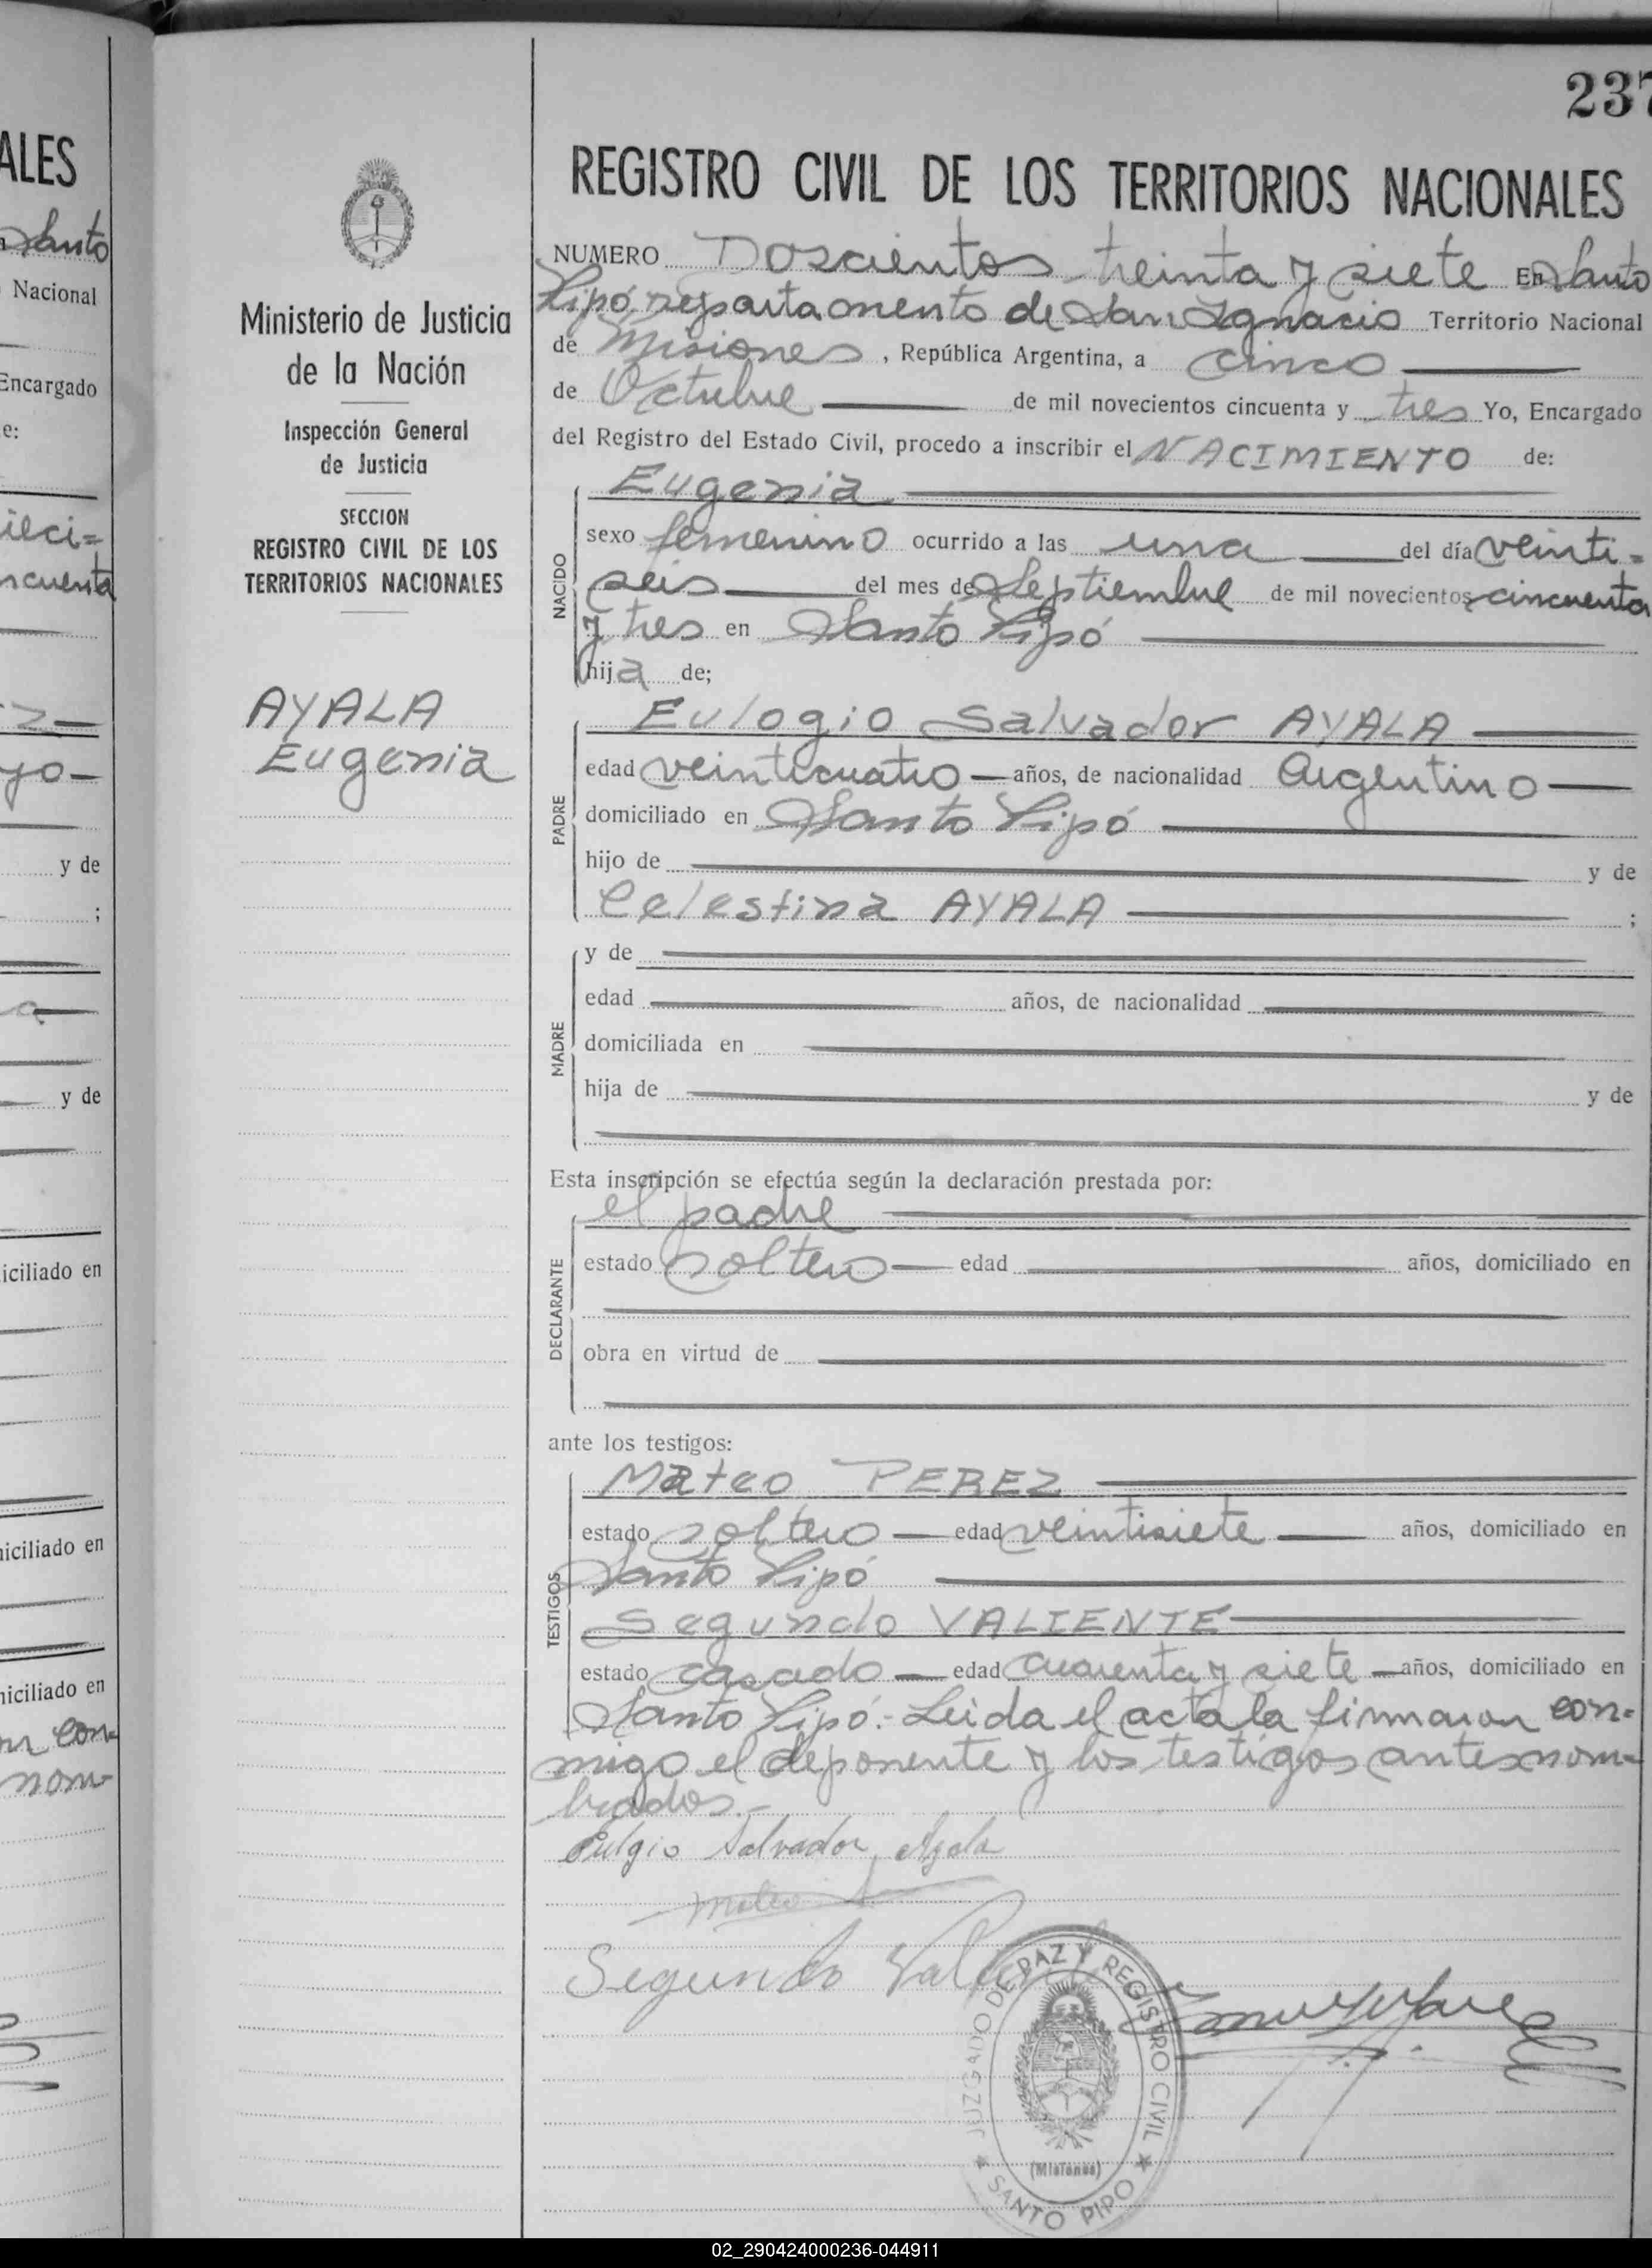 237
ALES
Santo
Nacional
Encargado
e:
ieci=
ncuenta
yo—
y de
;
y de
iciliado en
niciliado en
niciliado en
con-
nom-
Ministerio de Justicia
de la Nación
Inspección General
de Justicia
SECCION
REGISTRO CIVIL DE LOS
TERRITORIOS NACIONALES
AYALA
Eugenia
REGISTRO CIVIL DE LOS TERRITORIOS NACIONALES
NUMERO Doscientos treinta y siete En Santo
Pipó, departamento de San Ignacio Territorio Nacional
de Misiones, República Argentina, a cinco
de Octubre de mil novecientos cincuenta y tres Yo, Encargado
del Registro del Estado Civil, procedo a inscribir el NACIMIENTO de:
Eugenia
NACIDO
sexo femenino ocurrido a las una del día veinti=
seis del mes de Septiembre de mil novecientos cincuenta
y tres en Santo Pipó
hija de;
PADRE
Eulogio Salvador AYALA
edad veinticuatro años, de nacionalidad Argentino
domiciliado en Santo Pipó
hijo de y de
Celestina AYALA ;
MADRE
y de
edad años, de nacionalidad
domiciliada en
hija de y de
Esta inscripción se efectúa según la declaración prestada por:
DECLARANTE
el padre
estado soltero edad años, domiciliado en
obra en virtud de
ante los testigos:
TESTIGOS
Mateo PEREZ
estado soltero edad veintisiete años, domiciliado en
Santo Pipó
Segundo VALIENTE
estado casado edad cuarenta y siete años, domiciliado en
Santo Pipó.- Leida el acta la firmaron con=
migo el deponente y los testigos antesnom=
brados.-
Eulgio Salvador Ayala
Mateo
Segundo
JUZGADO DE PAZ Y REGISTRO CIVIL
(Misiones)
SANTO PIPO
02_290424000236-044911